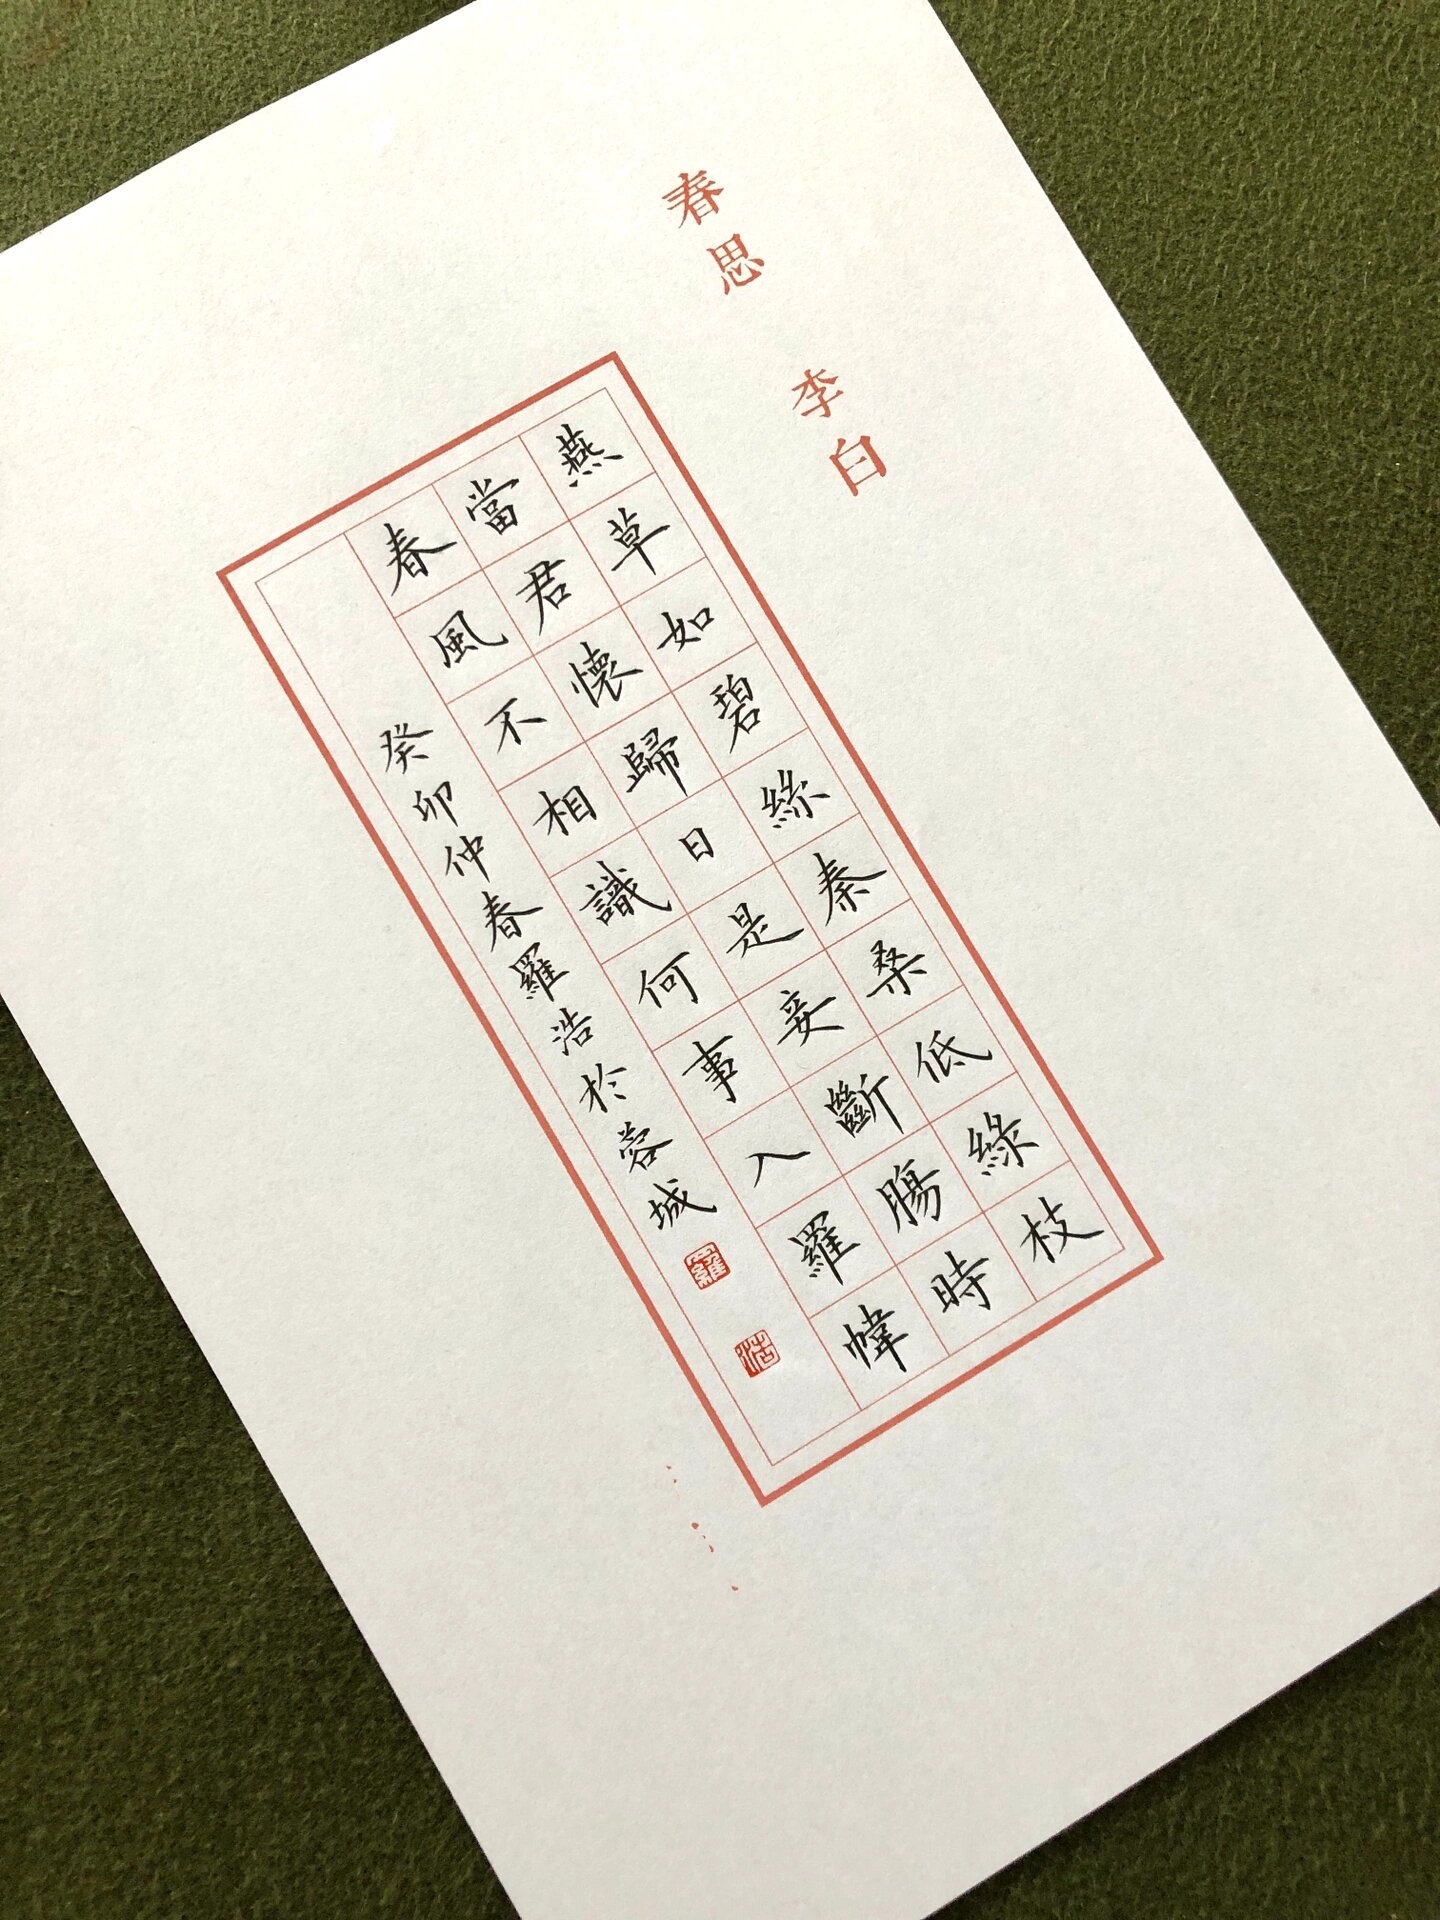 春思 李白
燕草如碧絲秦桑低綠枝
當君懷歸日是妾斷腸時
春風不相識何事入羅幃
癸卯仲春羅浩於蓉城
羅
浩